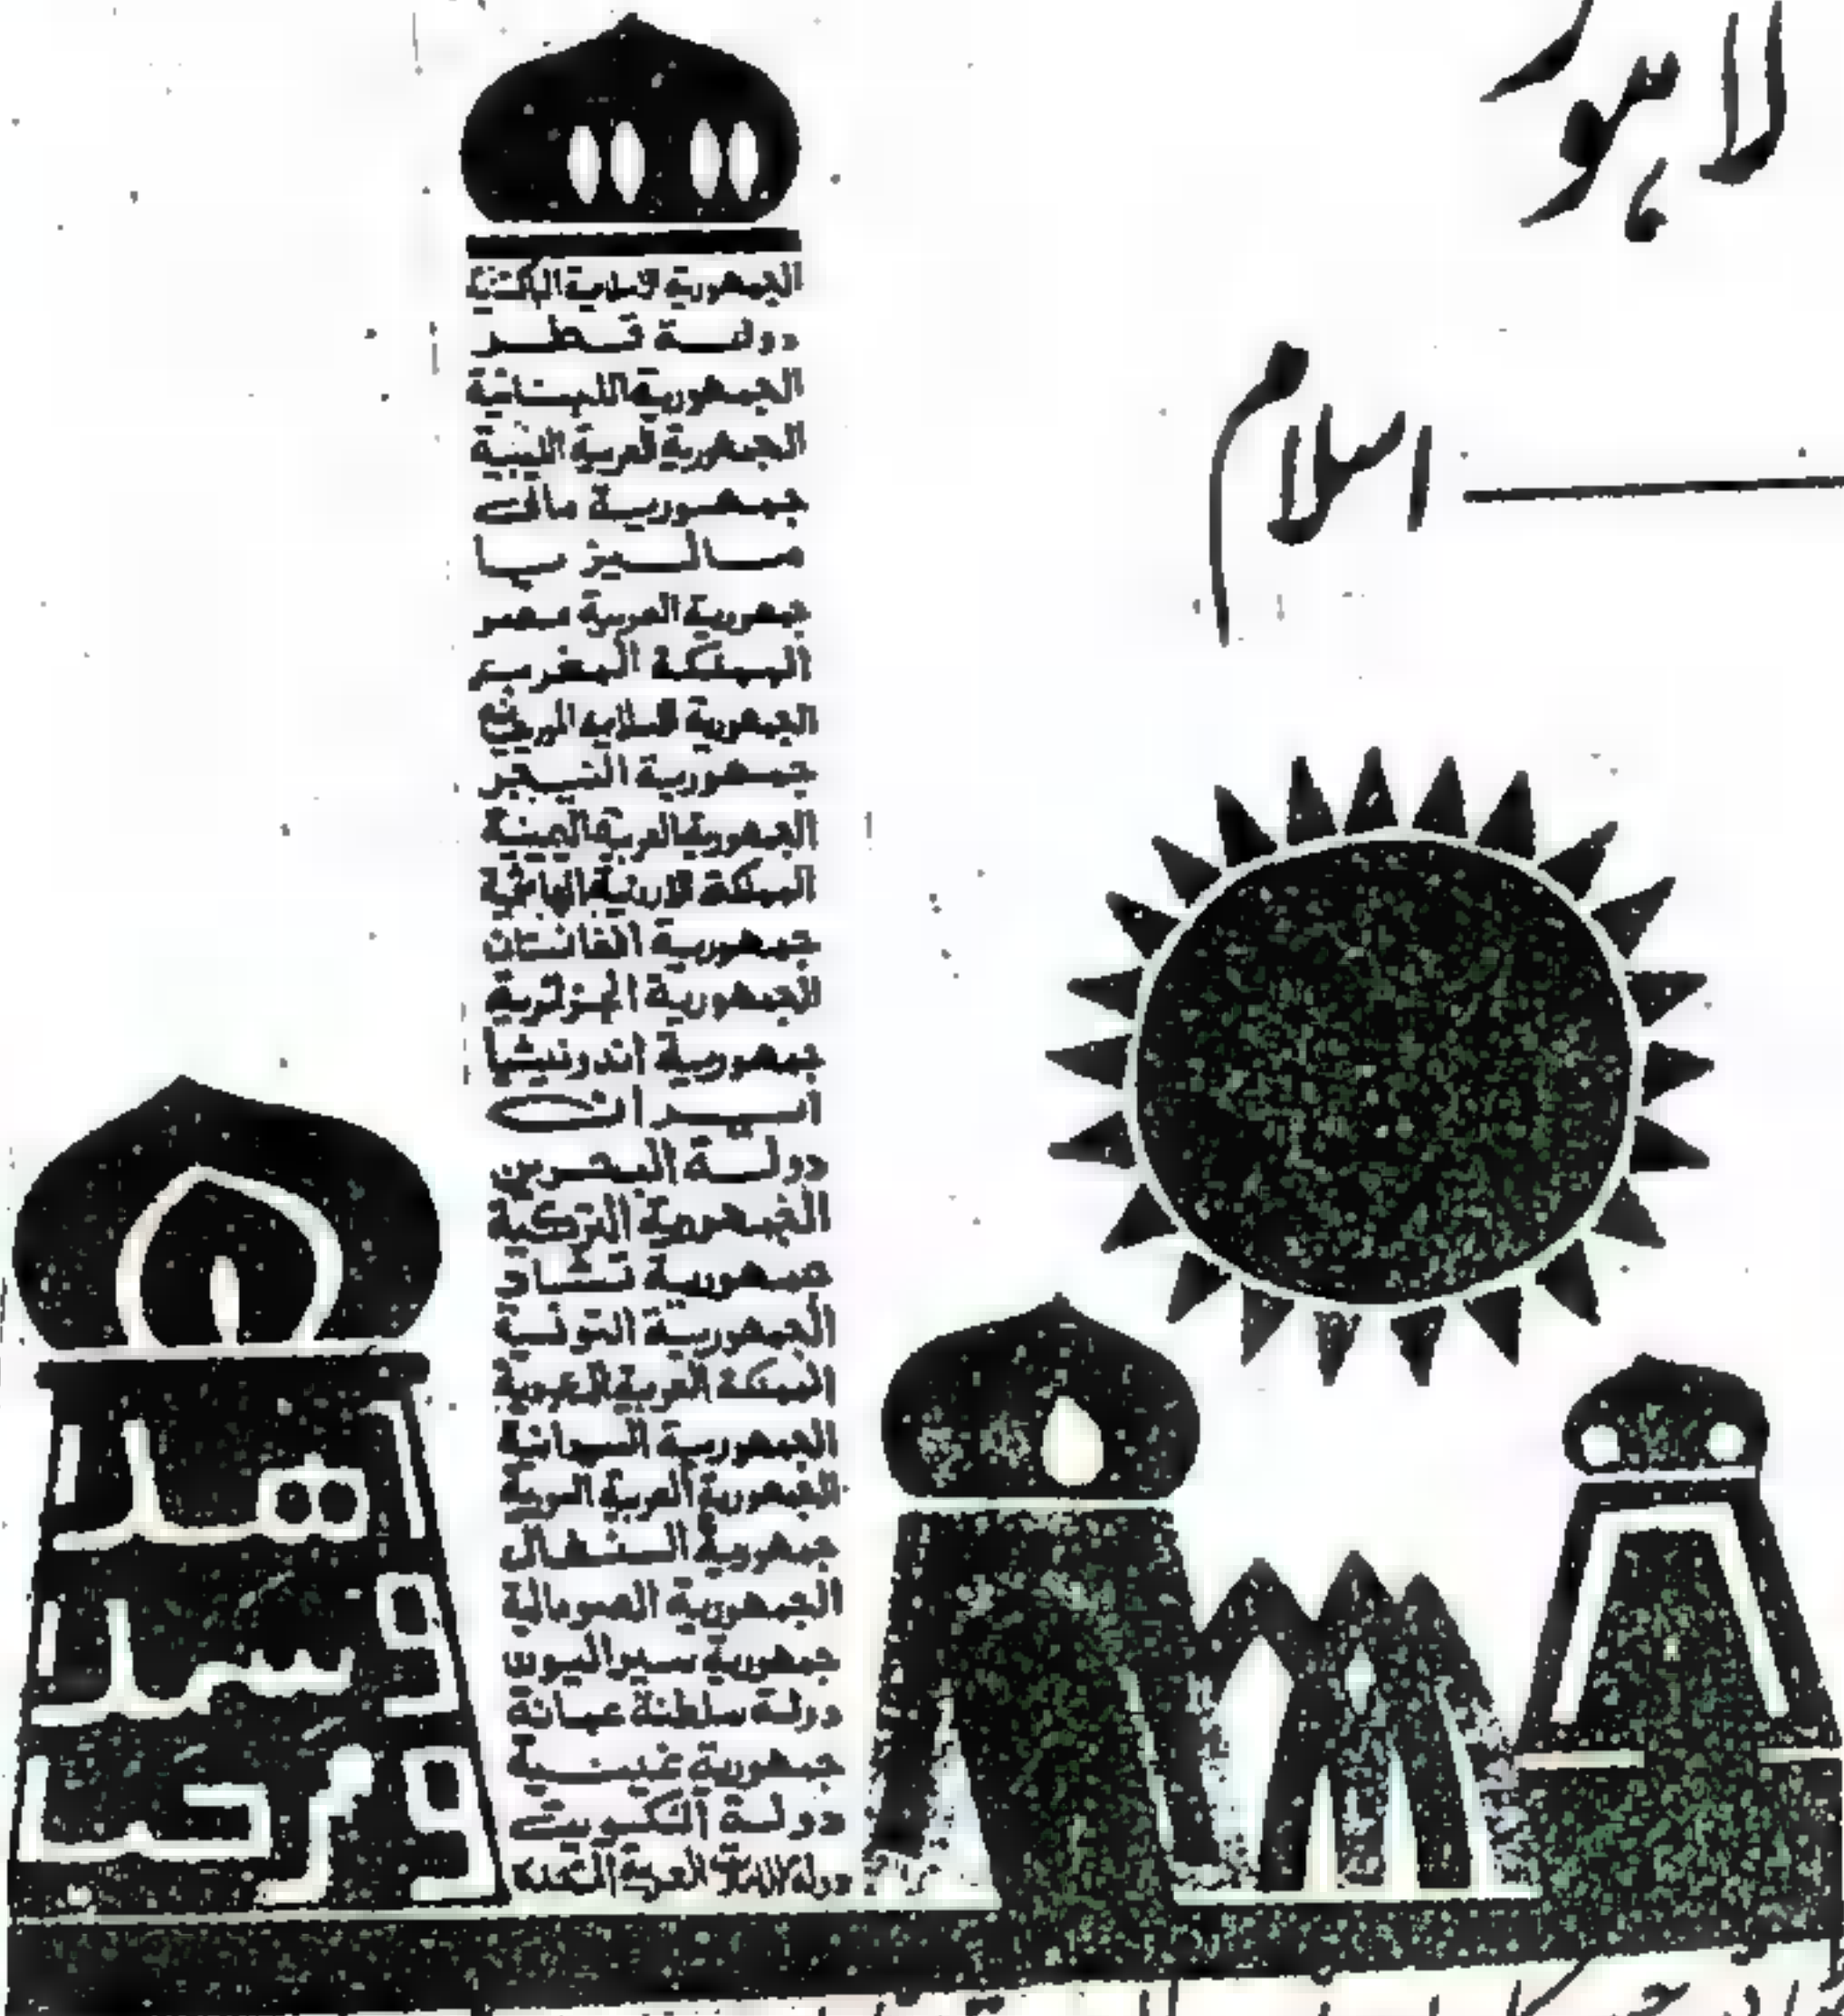 لاہور
اسلام
الجمهورية الاسلامية الباكستانية
دولة قطر
الجمهورية اللبنانية
الجمهورية العربية الليبية
جمهورية مالي
ماليزيا
جمهورية العربية مصر
المملكة المغربية
الجمهورية الاسلامية
جمهورية النيجر
الجمهورية العربية اليمنية
المملكة الاردنية الهاشمية
جمهورية افغانستان
الجمهورية الجزائرية
جمهورية اندونيشيا
ايران
دولة البحرين
الجمهورية التركية
جمهورية تشاد
الجمهورية التونسية
المملكة العربية السعودية
الجمهورية السودانية
الجمهورية العربية السورية
جمهورية السنغال
الجمهورية الصومالية
جمهورية سيراليون
دولة سلطنة عمانة
جمهورية غينية
دولة الكويت
دولة الامارات العربية المتحدة
اهلا
و سهلا
و مرحبا